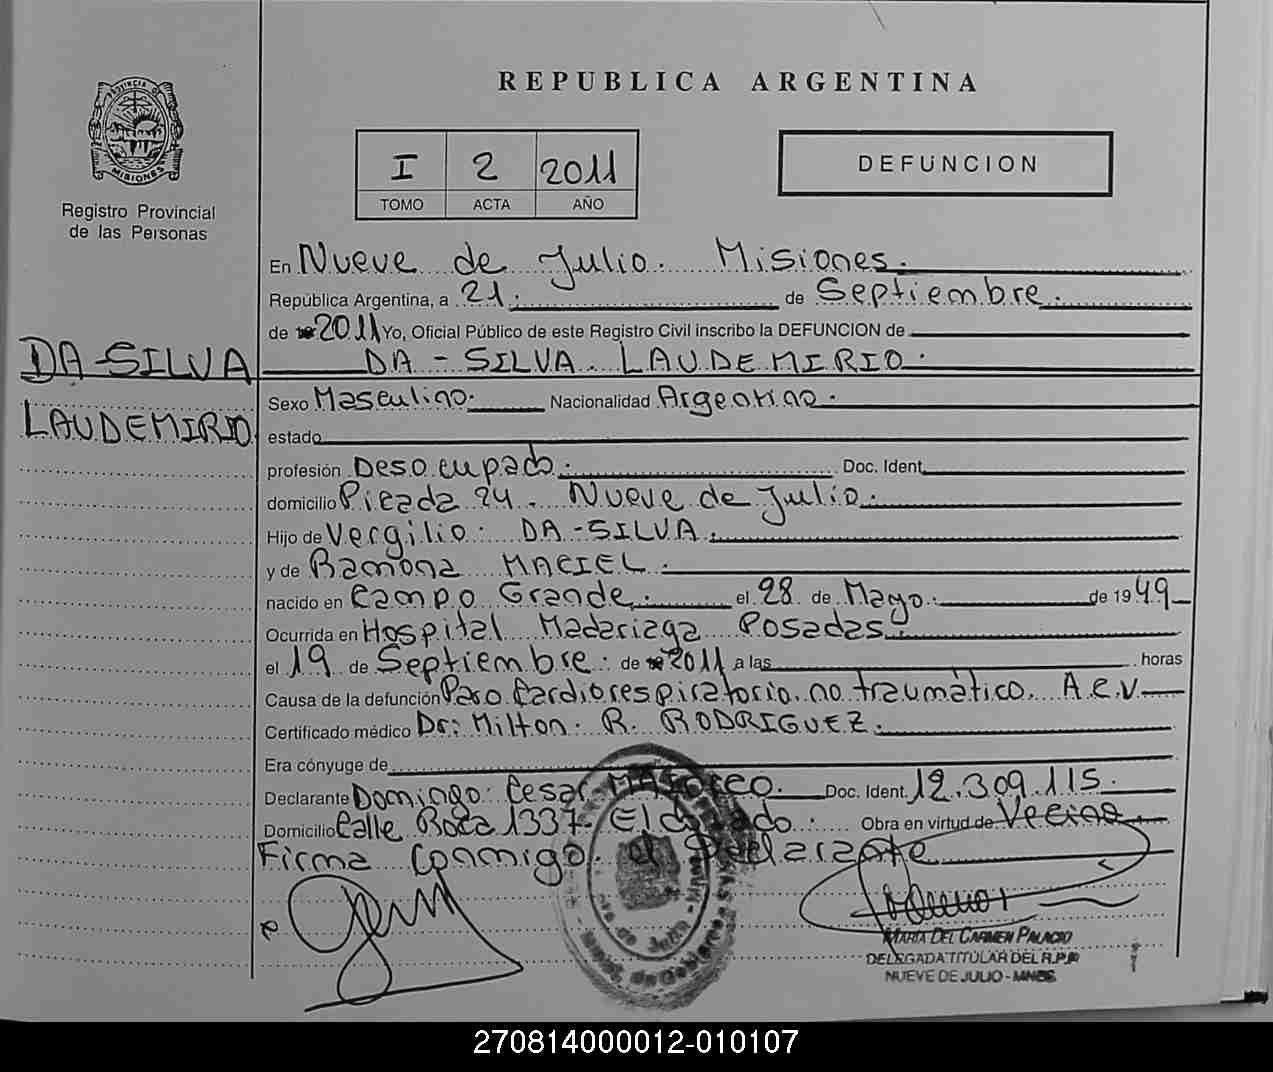 REPUBLICA ARGENTINA
PROVINCIA DE MISIONES
Registro Provincial
de las Personas
I 2 2011
TOMO ACTA AÑO
DEFUNCION
En Nueve de Julio. Misiones.
República Argentina, a 21. de Septiembre.
de 2011 Yo, Oficial Público de este Registro Civil inscribo la DEFUNCION de
DA-SILVA
LAUDEMIRIO
DA-SILVA. LAUDEMIRIO.
Sexo Masculino. Nacionalidad Argentino.
estado
profesión Desocupado. Doc. Ident.
domicilio Picada 24. Nueve de Julio.
Hijo de Vergilio. DA-SILVA.
y de Ramona MACIEL.
nacido en Campo Grande. el 28 de Mayo. de 1949
Ocurrida en Hospital Madariaga Posadas.
el 19 de Septiembre. de 2011 a las horas
Causa de la defunción Paro Cardiorespiratorio. no traumático. A.C.V
Certificado médico Dr: Milton. R. RODRIGUEZ.
Era cónyuge de
Declarante Domingo Cesar Doc. Ident. 12.309.115.
Domicilio Calle Roca 1337- Eldorado. Obra en virtud de Vecino
Firma conmigo. el Declarante
MARÍA DEL CARMEN PALACIO
DELEGADA TITULAR DEL R.P.P
NUEVE DE JULIO - MNES.
270814000012-010107